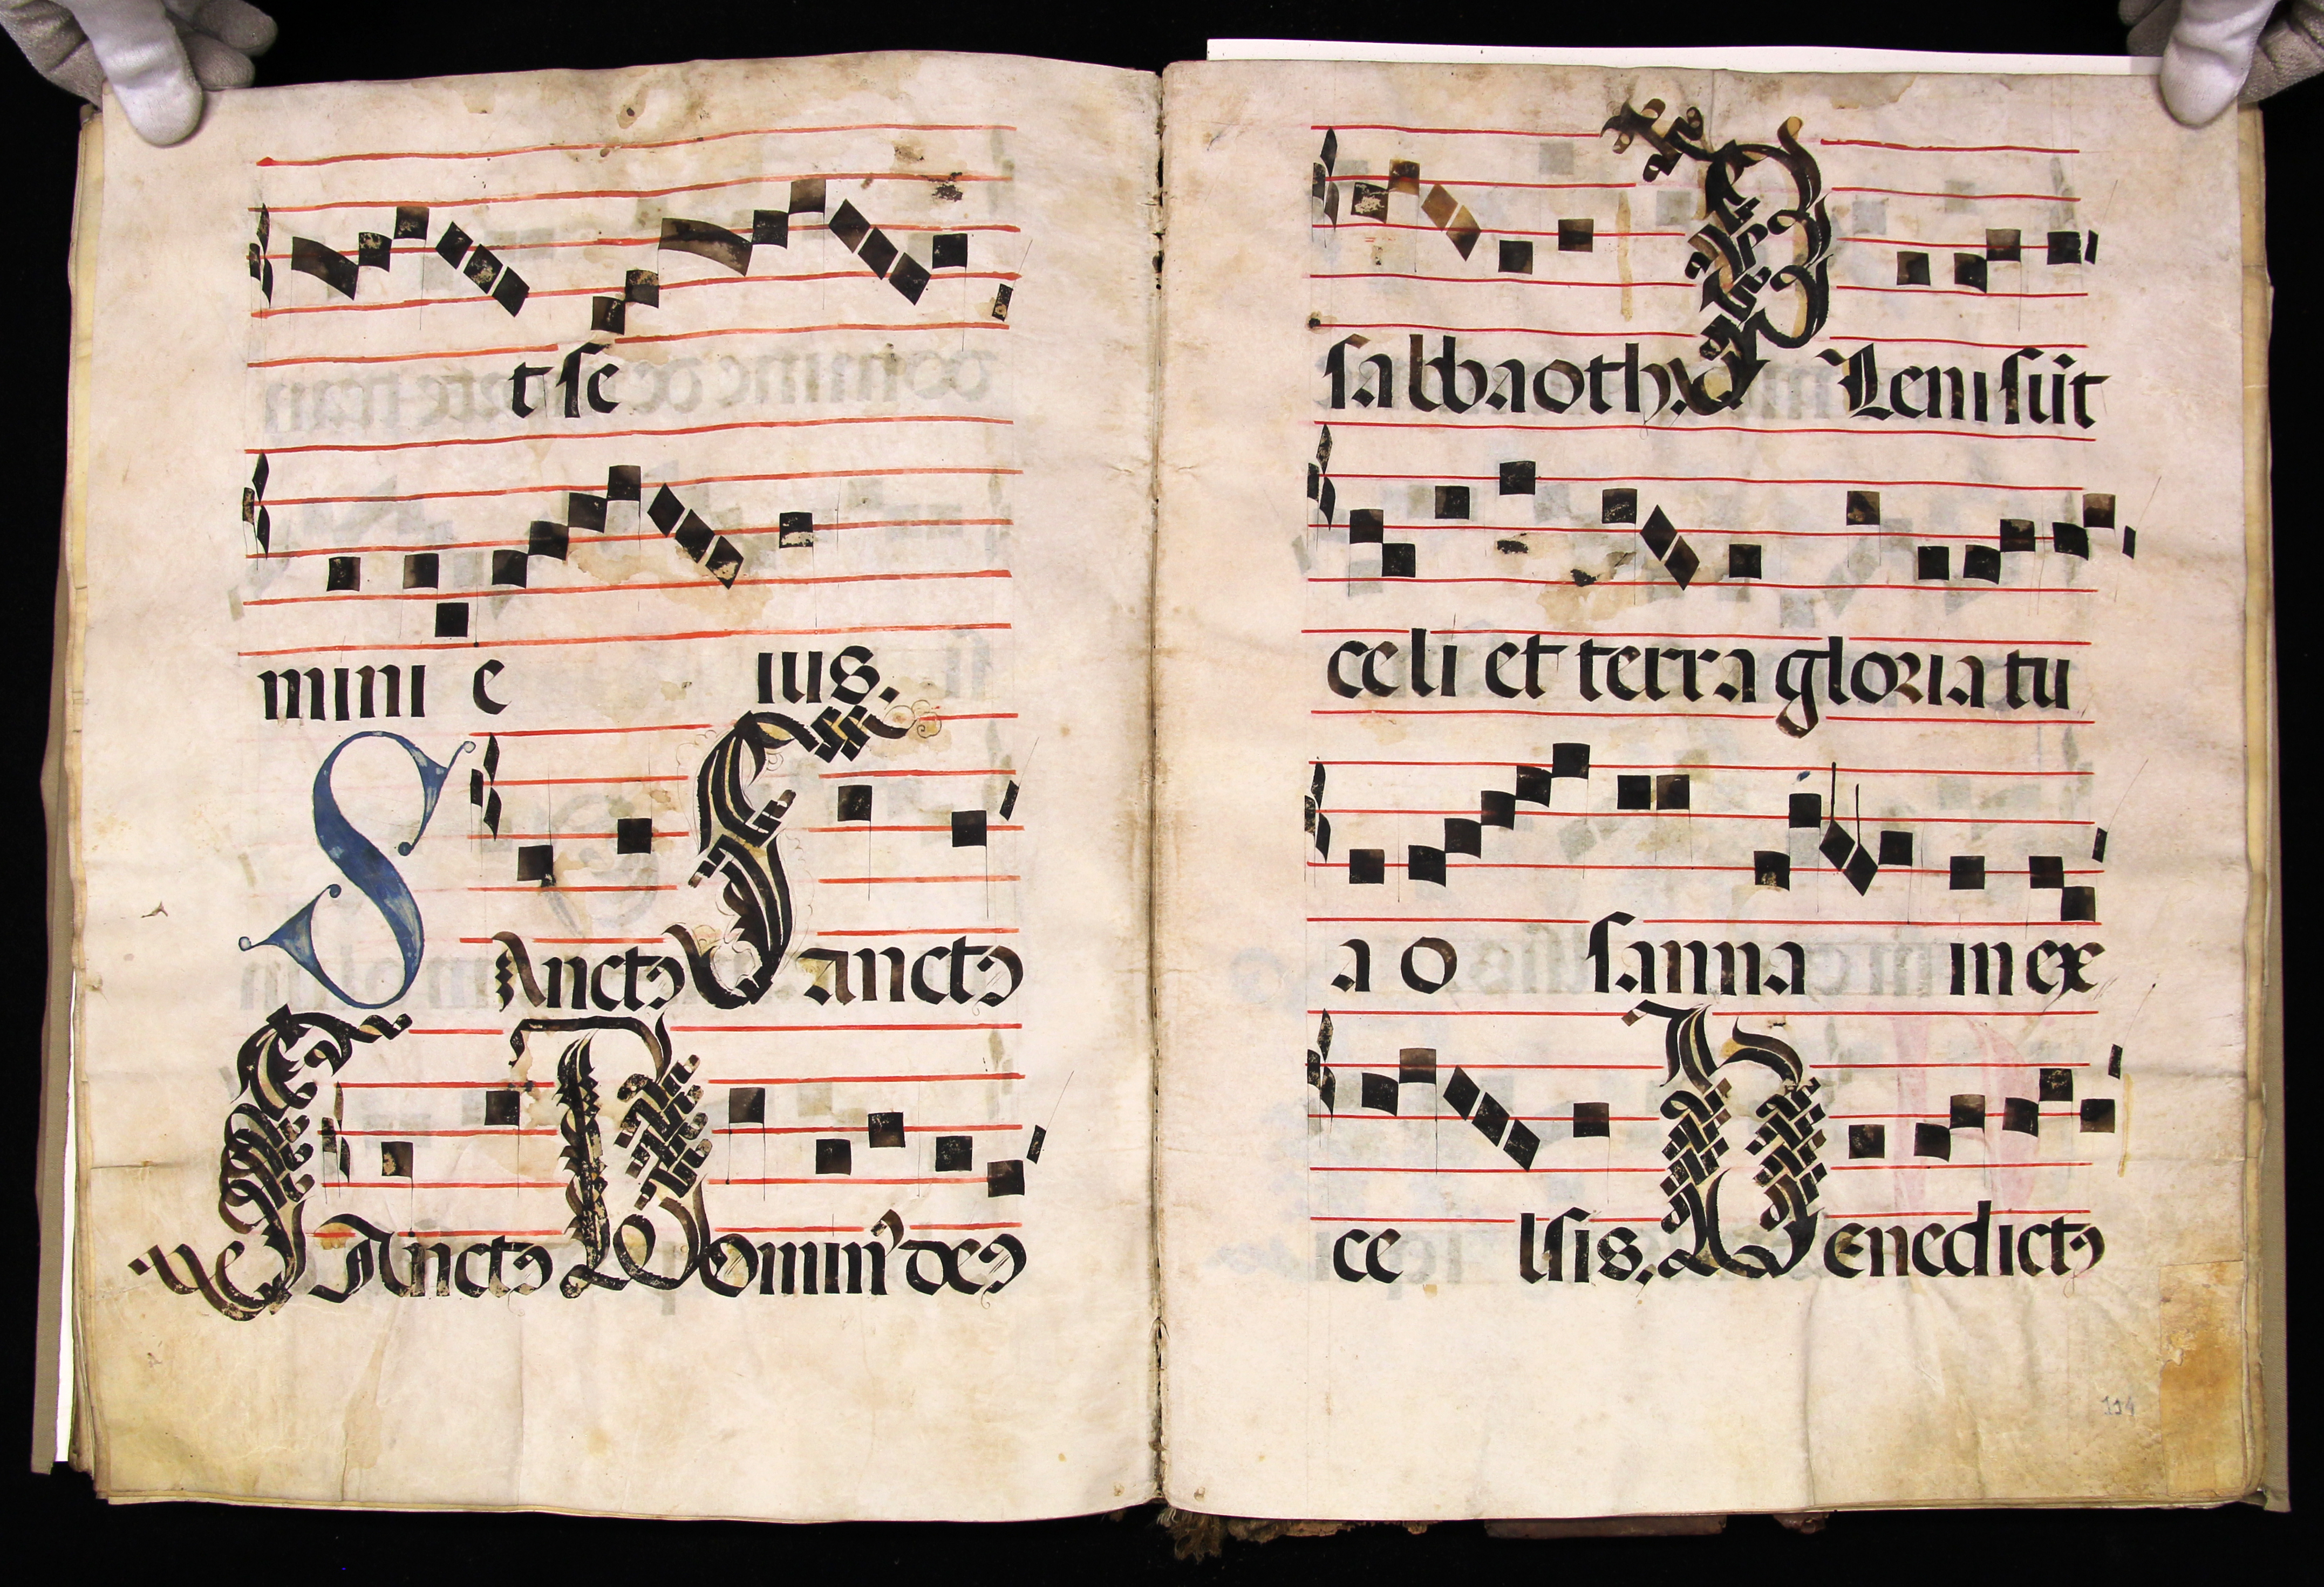 t se
mini e ius.
Sanctꝰ Sanctꝰ
Sanctꝰ Dominꝰ deꝰ
sabbaoth. Pleni sūt
celi et terra gloria tu
a o sanna in ex
ce lsis. Benedictꝰ
114